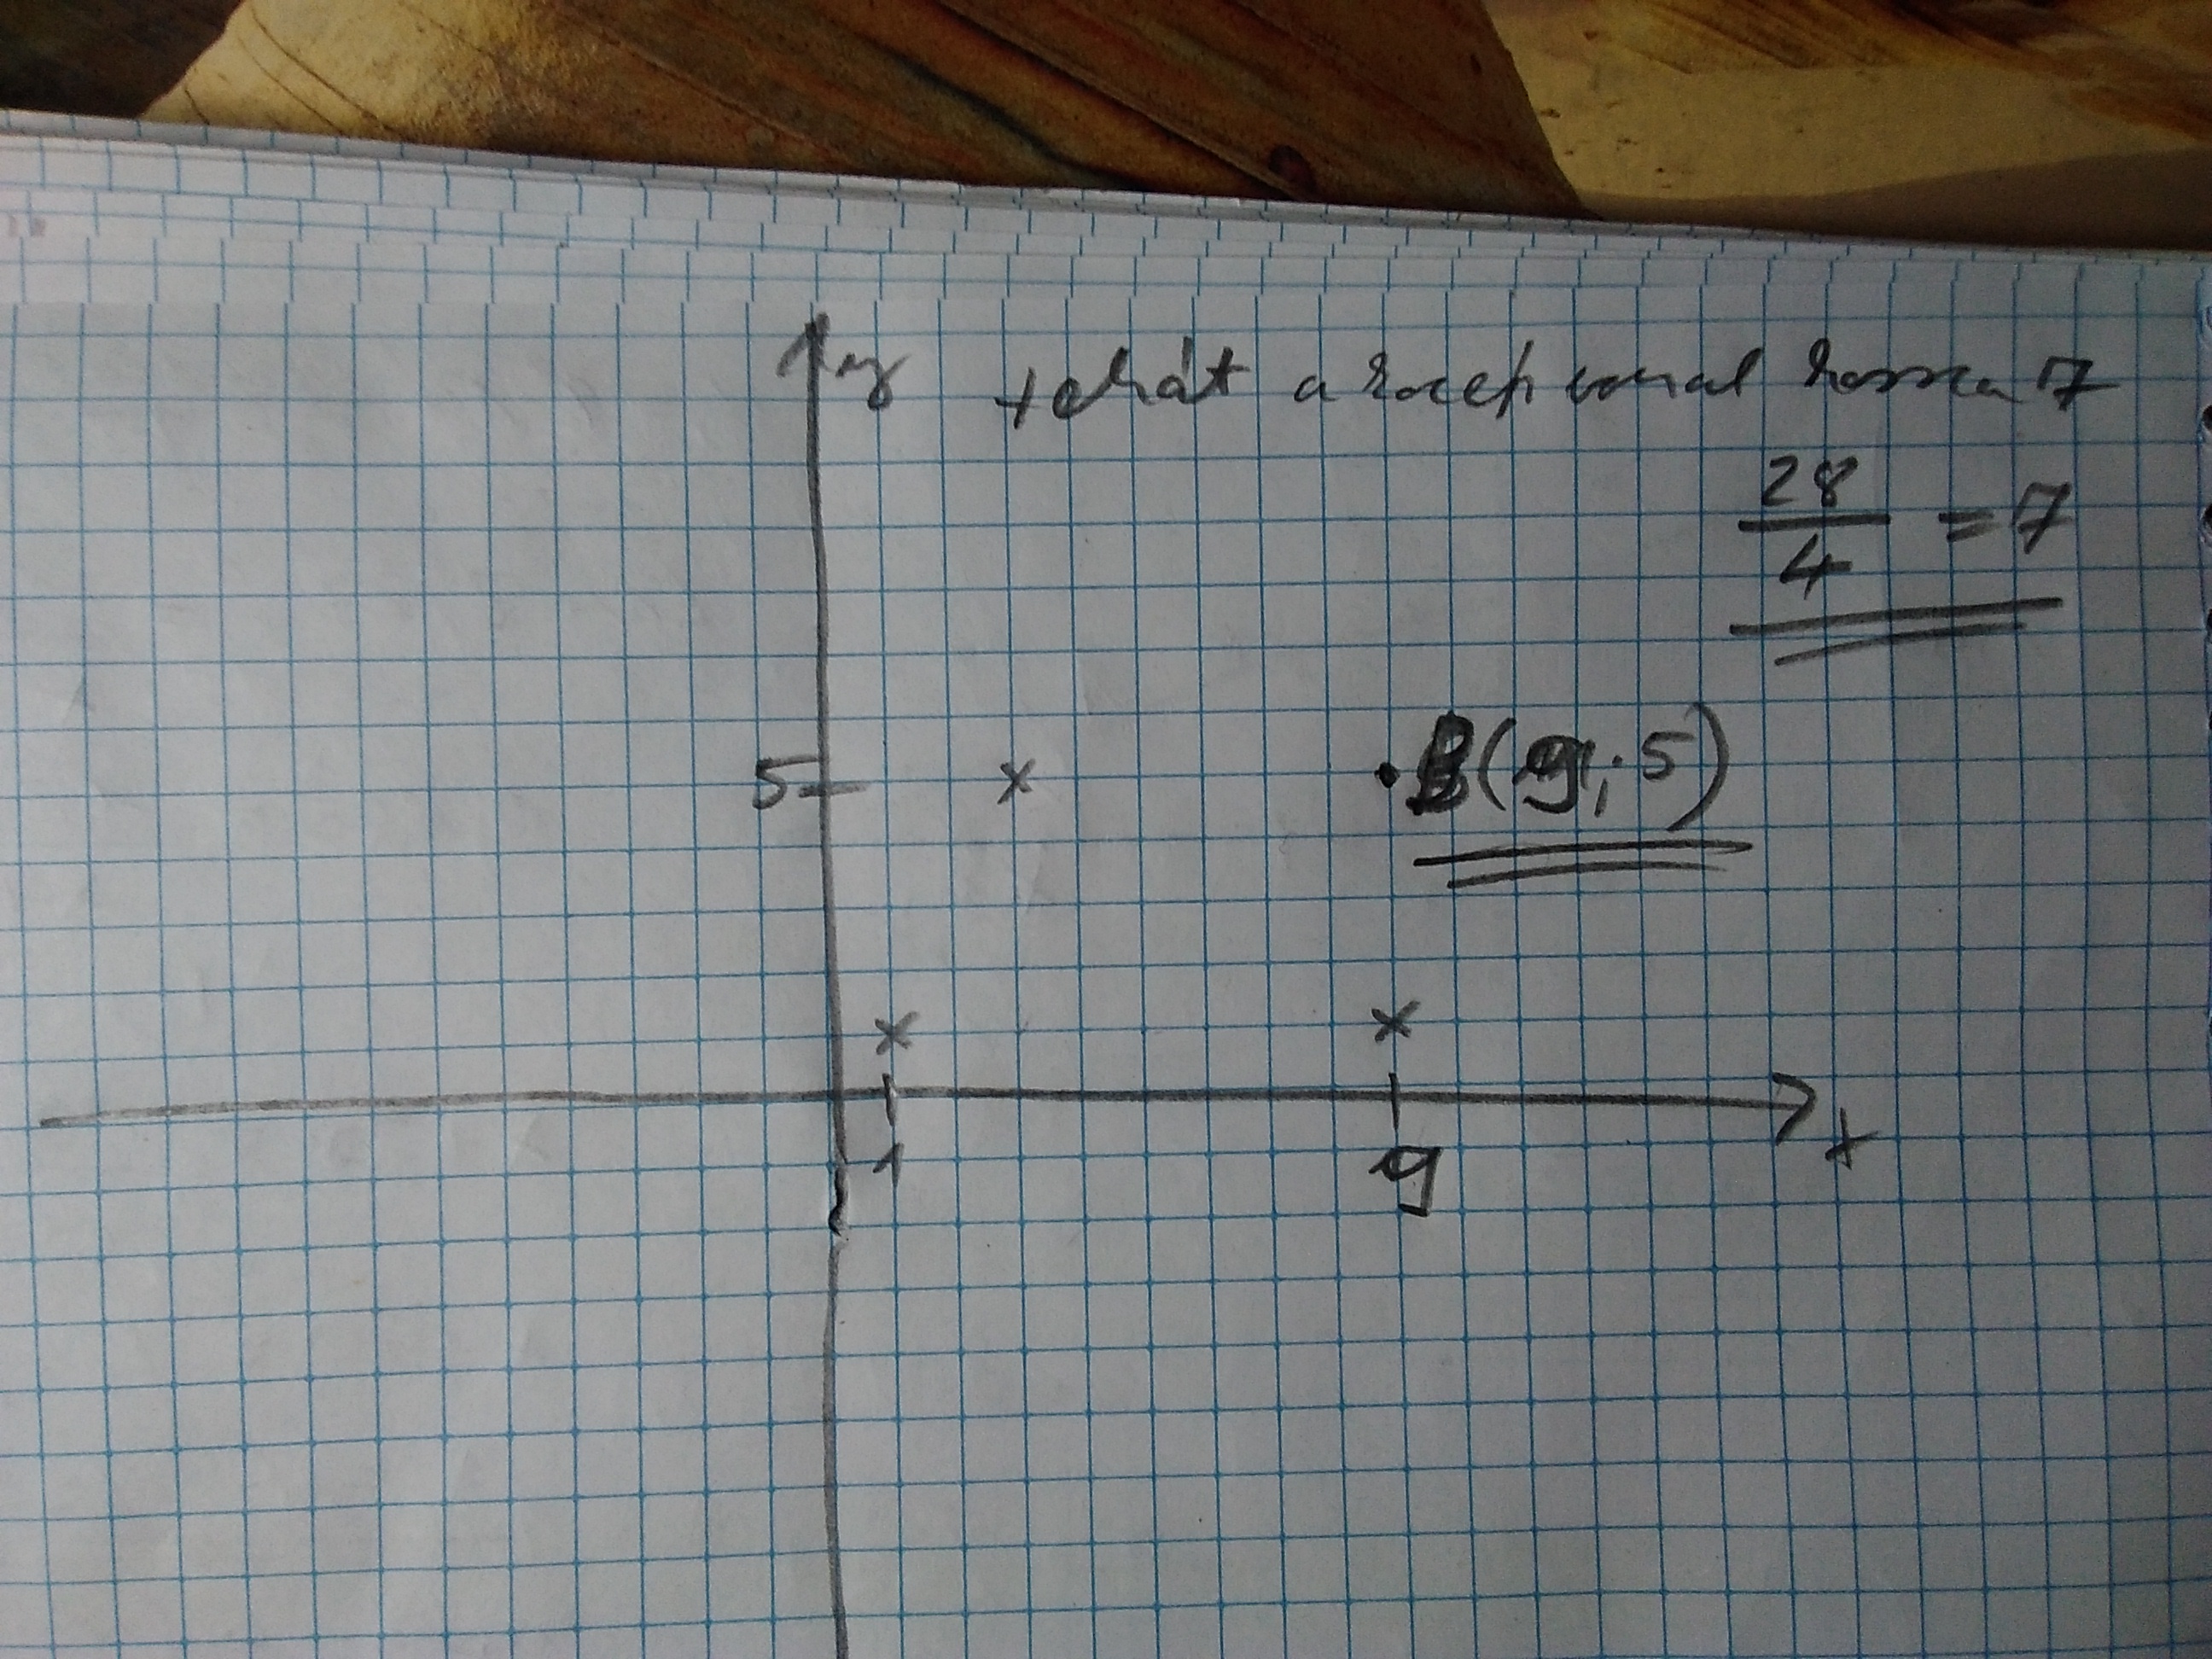 y tehát a középvonal hossza 7
28
4
= 7
5
x
B(9; 5)
x
x
1
9
x